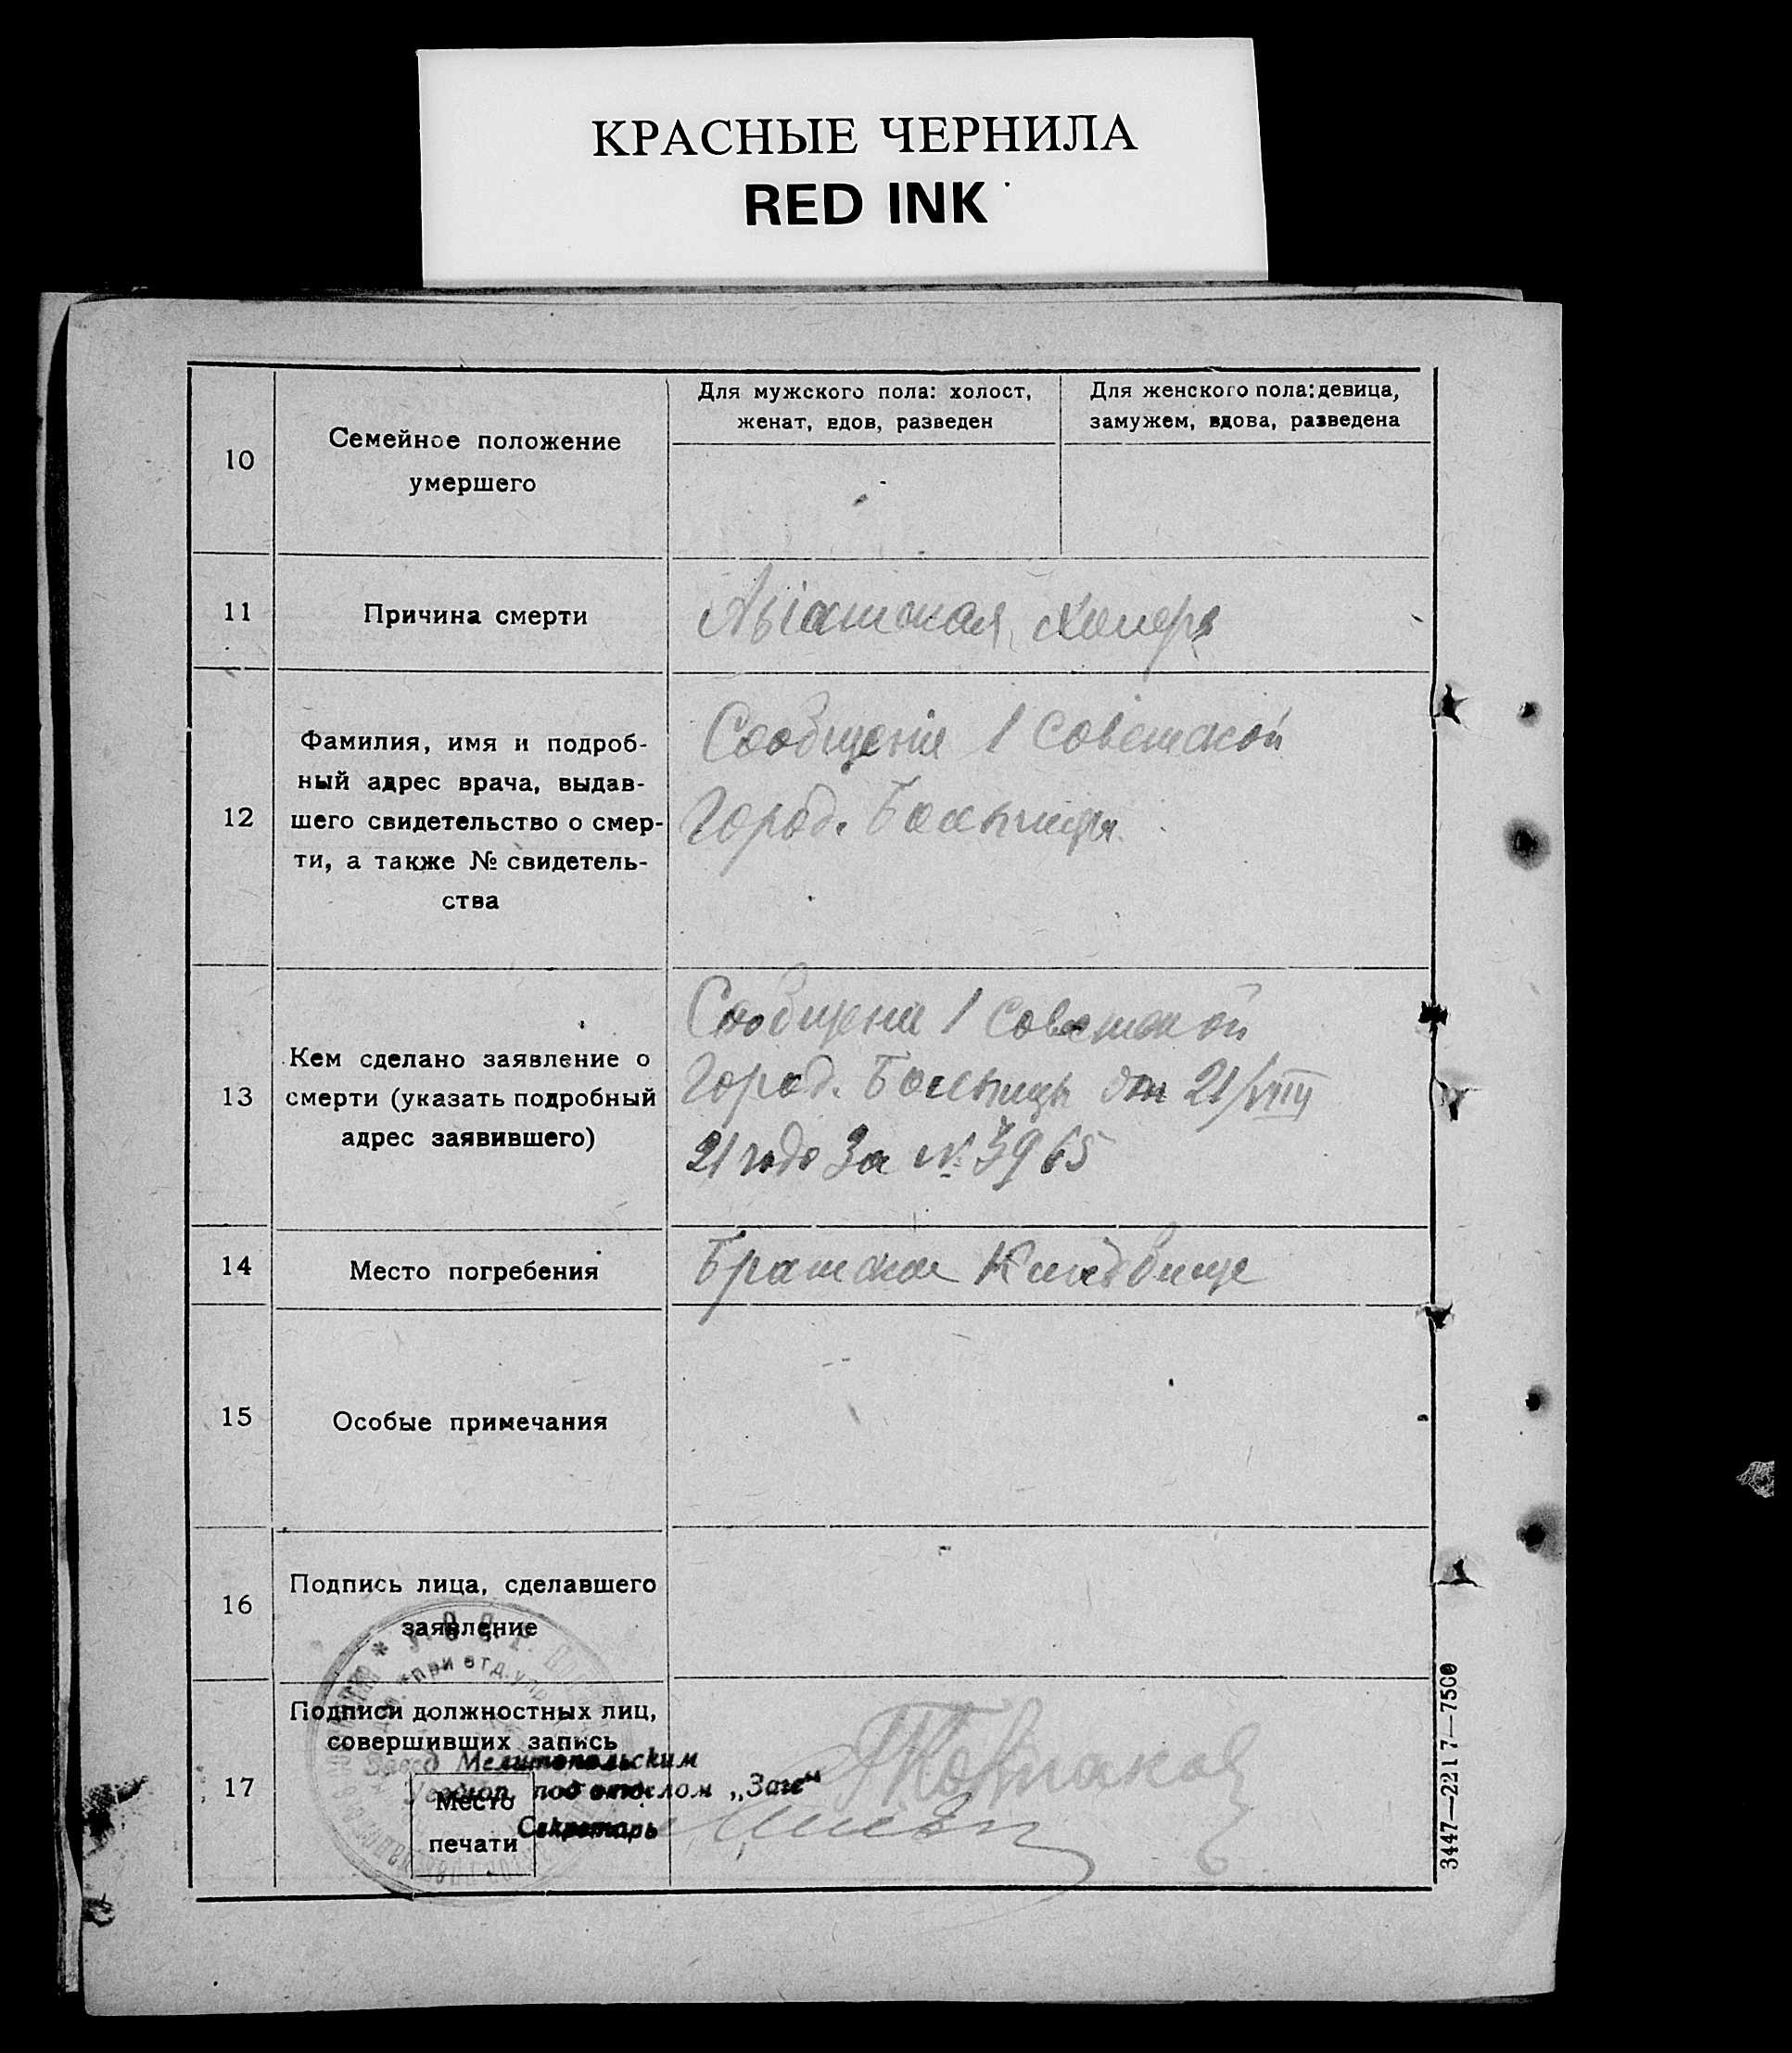 КРАСНЫЕ ЧЕРНИЛА
RED INK
10
Семейное положение
умершего
Для мужского пола: холост,
женат, вдов, разведен
Для женского пола: девица,
замужем, вдова, разведена
11
Причина смерти
Азіатская холера
12
Фамилия, имя и подроб-
ный адрес врача, выдав-
шего свидетельство о смер-
ти, а также № свидетель-
ства
Сообщение 1 Советской
Город. Больницы
13
Кем сделано заявление о
смерти (указать подробный
адрес заявившего)
Сообщение 1 Советской
Город. Больницы от 21/VIII
21 года за № 3965
14
Место погребения
Братское Кладбище
15
Особые примечания
16
Подпись лица, сделавшего
заявление
17
Подписи должностных лиц,
совершивших запись
Завед Мелитопольским
под отделом „Загс“
Секретарь
Место
печати
при отд. упр.
3447—2217—7500